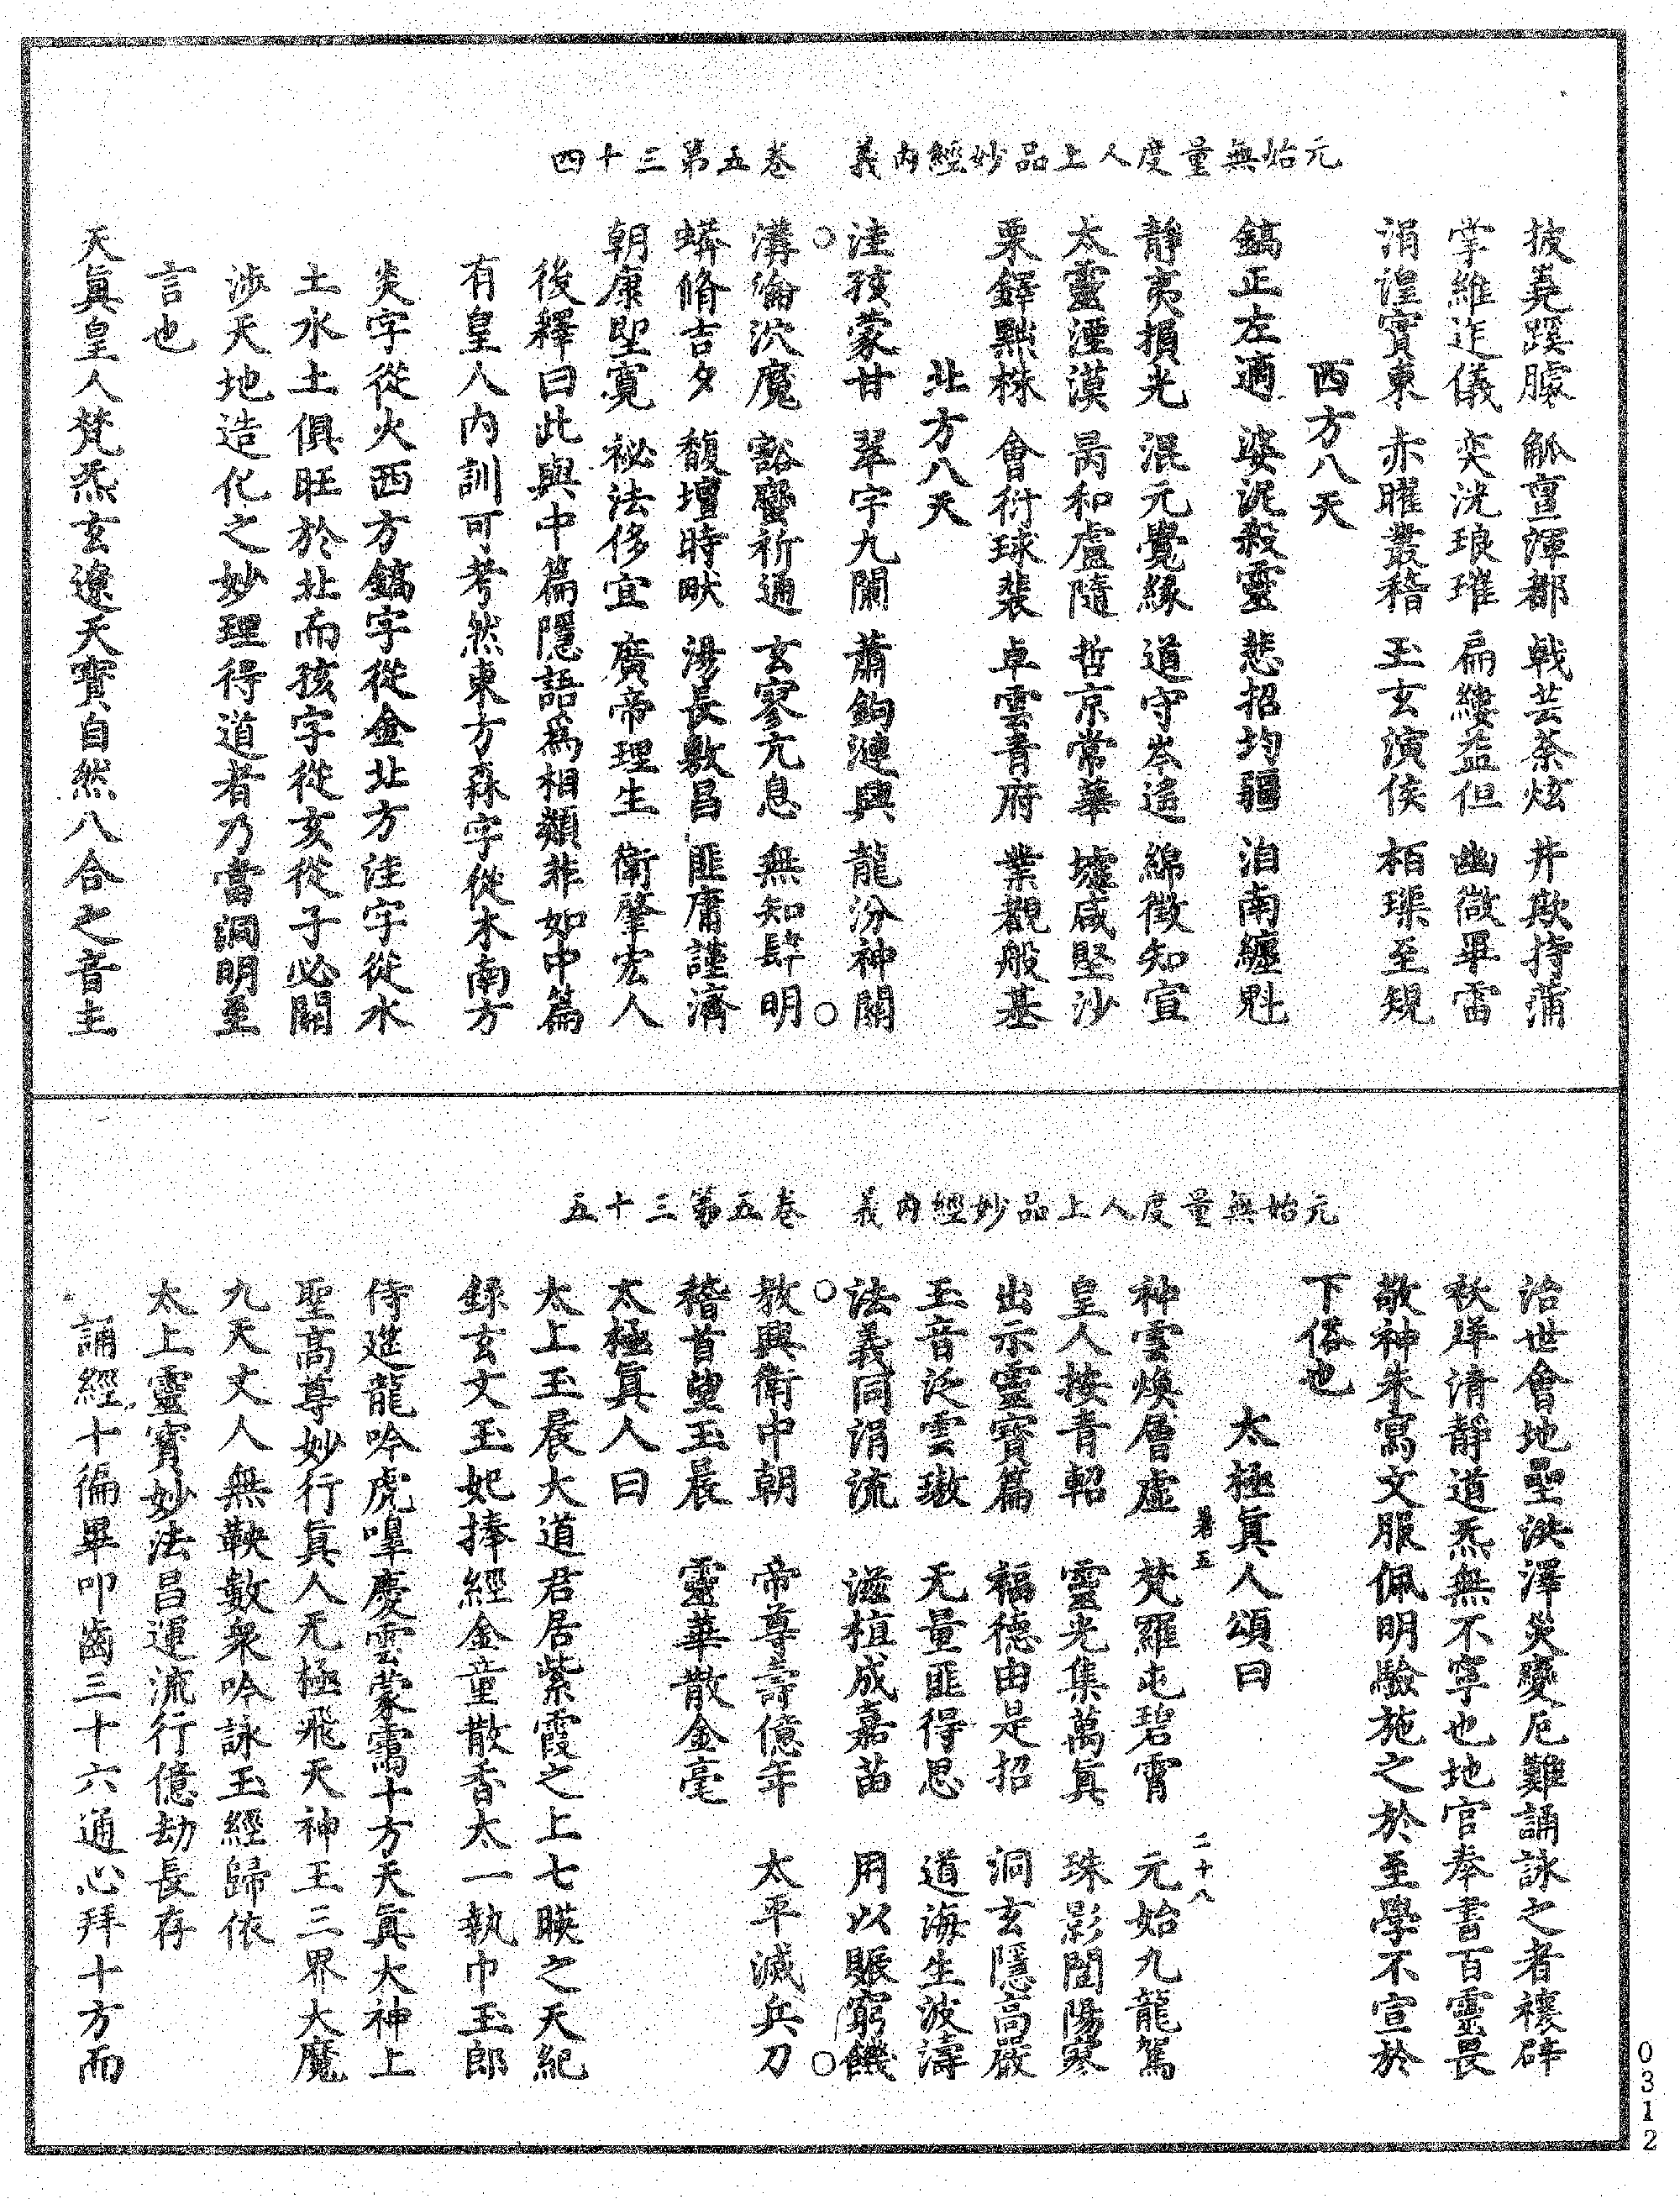 元始無量度人上品妙經內義　卷五第三十四
披堯蹊臄　觚亶渾都　戟芸荼炫　井欺持蒲
掌維迮儀　奕洸琅璀　扁縷益但　幽微畢雷
涓湟寶東　赤曜叢稽　玉玄演侯　栢璖至規
西方八天
鎬正左適　婆泥殺靈　悲招均疆　洎南纏魁
靜夷損光　混元覺緣　道守岑遙　綿徵知宣
太靈湮漠　咼和盧隨　哲京常華　墟咸堅沙
栗鐸點株　會衍球裴　卓雲青府　業觀般基
北方八天
洼孩蒙甘　翠宇九闌　蕭鉤漣興　龍汾神關
溝淪泬魔　豁蠻祈通　玄寥亢息　無知肆明
蟒脩吉夕　馥壇時畎　湯長敷昌　匪庸謹濟
朝康聖寬　祕法侈宜　廣帝理生　衛肇宏人
後釋曰此與中篇隱語爲相類非如中篇
有皇人內訓可考然東方森字從木南方
炎字從火西方鎬字從金北方洼字從水
土水土俱旺於北而孩字從亥從子必關
涉天地造化之妙理得道者乃當洞明至
言也
天眞皇人梵炁玄遼天寶自然八合之音主
元始無量度人上品妙經內義　卷五第三十五
治世會地聖洪澤災變厄難誦詠之者禳辟
秋牂清靜道炁無不寧也地官奉書百靈畏
敬神朱寫文服佩明驗施之於至學不宣於
下俗也
太極眞人頌曰
卷五　二十八
神雲煥層虛　梵羅屯碧霄　元始九龍駕
皇人按青軺　靈光集萬眞　珠影開陽寒
出示靈寶篇　福德由是招　洞玄隱高嚴
玉音泛雲璈　无量匪得思　道海生波濤
法義同涓流　滋植成嘉苗　用以賑窮饑
教興衛中朝　帝尊壽億年　太平滅兵刀
稽首望玉晨　靈華散金毫
太極眞人曰
太上玉晨大道君居紫霞之上七暎之天紀
錄玄文玉妃捧經金童散香太一執巾玉郎
侍進龍吟虎嘷慶雲蒙靄十方天眞大神上
聖高尊妙行眞人无極飛天神王三界大魔
九天丈人無鞅數衆吟詠玉經歸依
太上靈寶妙法昌運流行億劫長存
誦經十徧畢叩齒三十六通心拜十方而
0312